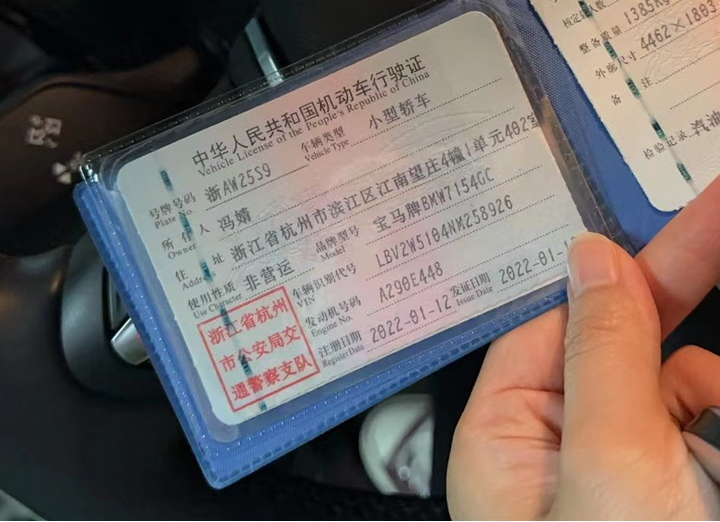 中华人民共和国机动车行驶证
Vehicle License of the People's Republic of China
号牌号码 浙AW25S9 车辆类型 小型轿车
Plate No. Vehicle Type
所有人 冯婧
Owner
住址 浙江省杭州市滨江区江南望庄4幢1单元402室
Address
使用性质 非营运 品牌型号 宝马牌BMW7154GC
Use Character Model
车辆识别代号 LBV2W5104NM258926
VIN
发动机号码 A290E448
Engine No.
注册日期 2022-01-12 发证日期 2022-01-1
Register Date Issue Date
浙江省杭州
市公安局交
通警察支队
核定载人数
整备质量 1385Kg
外廓尺寸 4462×1803
备注
检验记录 汽油